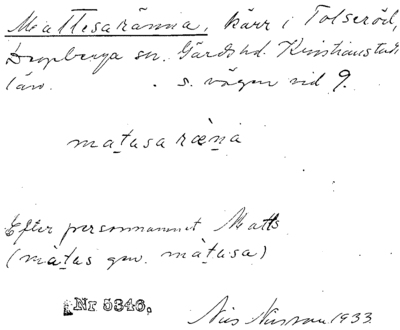 Mattesaränna, kärr i Tolseröd,
Degeberga sn. Gärds hd. Kristianstads
län. s. vägen vid 9.
matasaræna
Efter personnamnet Matts
(màtas gen. màtasa)
Nr 5346.
Nils 1933